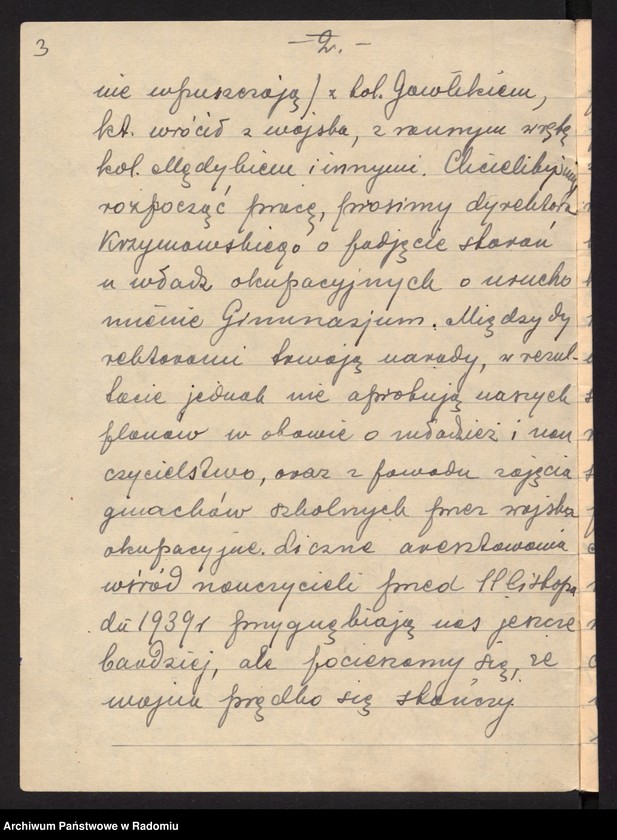 3
- 2. -
nie wpuszczają) z kol. Gawlikiem,
kt. wrócił z wojska, z rannym w rękę
kol. Mędykiem i innymi. Chcielibyśmy
rozpocząć pracę, prosimy dyrektora
Krzymowskiego o podjęcie starań
u władz okupacyjnych o urucho
mienie Gimnazjum. Między dy
rektorami trwają narady, w rezul-
tacie jednak nie aprobują naszych
planów w obawie o młodzież i nau
czycielstwo, oraz z powodu zajęcia
gmachów szkolnych przez wojska
okupacyjne. Liczne aresztowania
wśród nauczycieli przed 11 listopa
da 1939 r przygnębiają nas jeszcze
bardziej, ale pocieszamy się, że
wojna prędko się skończy.
Archiwum Państwowe w Radomiu